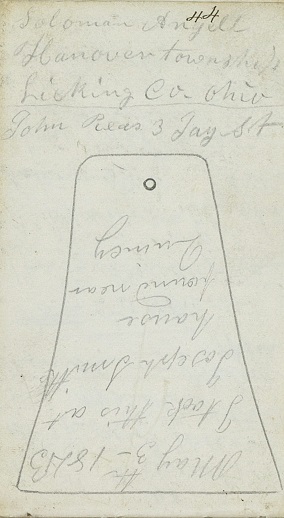 44
Soloman
Hanover township
Licking Co. Ohio
John 3 Jay St
May 3th - 1843
I took this at
Joseph Smiths
hause
found near
Quincy